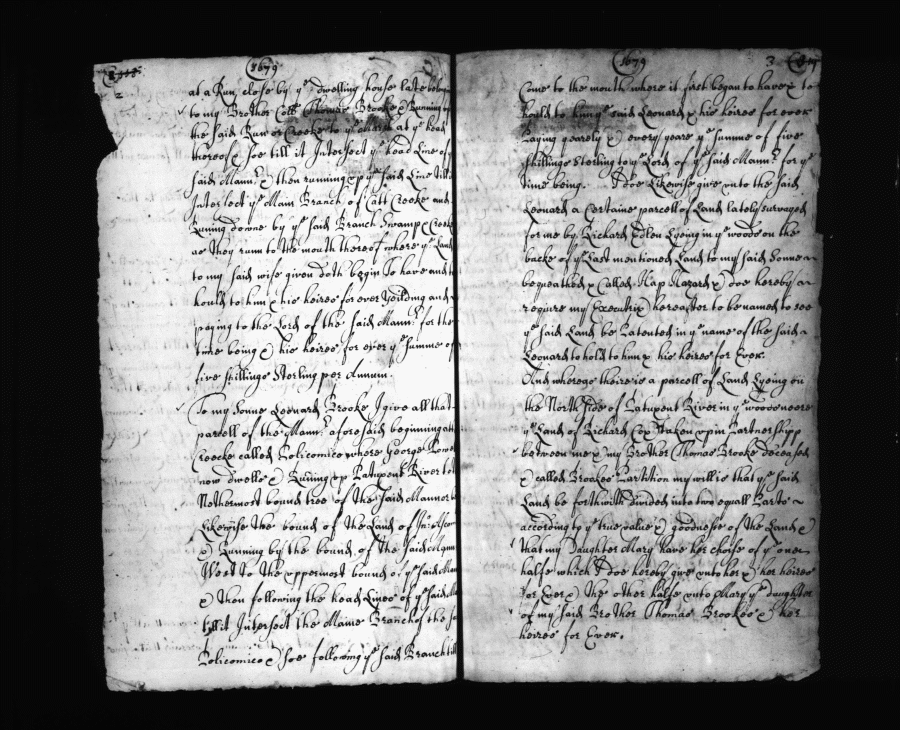 1679
2
at a Run close by ye dwelling house late belong
to my Brother Coll Thomas Brooke & Running
the said Run or Creeke to ye at ye head
thereof & Soe till it Intersect ye head Line of
said Mannr & then running up ye said Line till
Intersect ye Main Branch of Catt Creeke and
Runing downe by ye said Branch Swamp & Creek
as they runn to the mouth thereof where ye Land
to my said wife given doth begin To have and t
hould to him & his heires for ever Yeilding and
paying to the Lord of the said Mannr for the
time being & his heires for ever ye Summe of
five shillings Sterling per Annum.
To my Sonne Leonard Brooke I give all that
parcell of the Mannr aforesaid beginning att
Creecke called Policomico where George
now dwells & Runing up Patuxent River to
Nothermost bound tree of the said Mannor
Likewise the bound of the Land of Jno: Ascom
& Running by the bound of the said Mann
West to the uppermost bound of ye said Man
& then following the head Lines of ye said M
till it Intersect the Maine Branch of the s
Policomico & Soe following ye said Branch till
1679
3
Come to the mouth where it first began to have & to
hould to him ye said Leonard & his heires for ever
Paying yearely & every yeare ye Summe of five
shillings Sterling to ye Lord of ye said Mannr for ye
time being. I doe Likewise give unto the said
Leonard a Certaine parcell of Land lately survayed
for me by Richard Edlen Lyeing in ye woods on the
backe of ye Last mentioned Land to my said Sonne
bequeathed & Called Hap Hazard & doe hereby
require my Executrix hereafter to be named to see
ye said Land be Patented in ye name of the said
Leonard to hold to him & his heires for Ever.
And whereas theire is a parcell of Land Lyeing on
the North side of Patuxent River in ye woods neere
ye Land of Richard Cox Taken up in Partnershipp
between me & my Brother Thomas Brooke deceased
& called Brookes Partition my will is that ye said
Land be forthwith divided into two equall Parts
according to ye true value & goodness of the Land &
that my Daughter Mary have her choise of ye one
halfe which I doe hereby give unto her & her heires
for Ever & the other halfe unto Mary ye Daughter
of my said Brother Thomas Brookes & her
heires for Ever.